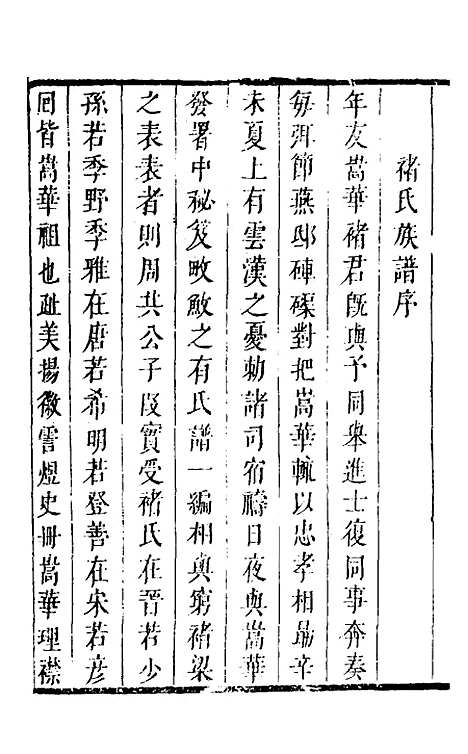 褚氏族譜序
年友嵩華褚君旣與予同舉進士復同事奔奏
每弭節燕邸硨磲對把嵩華輒以忠孝相勗辛
未夏上有雲漢之憂勅諸司宿禱日夜與嵩華
發署中秘笈畋漁之有氏譜一編相與窮褚梁
之表表者則周共公子段實受褚氏在晋若少
孫若季野季雅在唐若希明若登善在宋若彦
囘皆嵩華祖也趾美揚徽霅煜史冊嵩華理襟